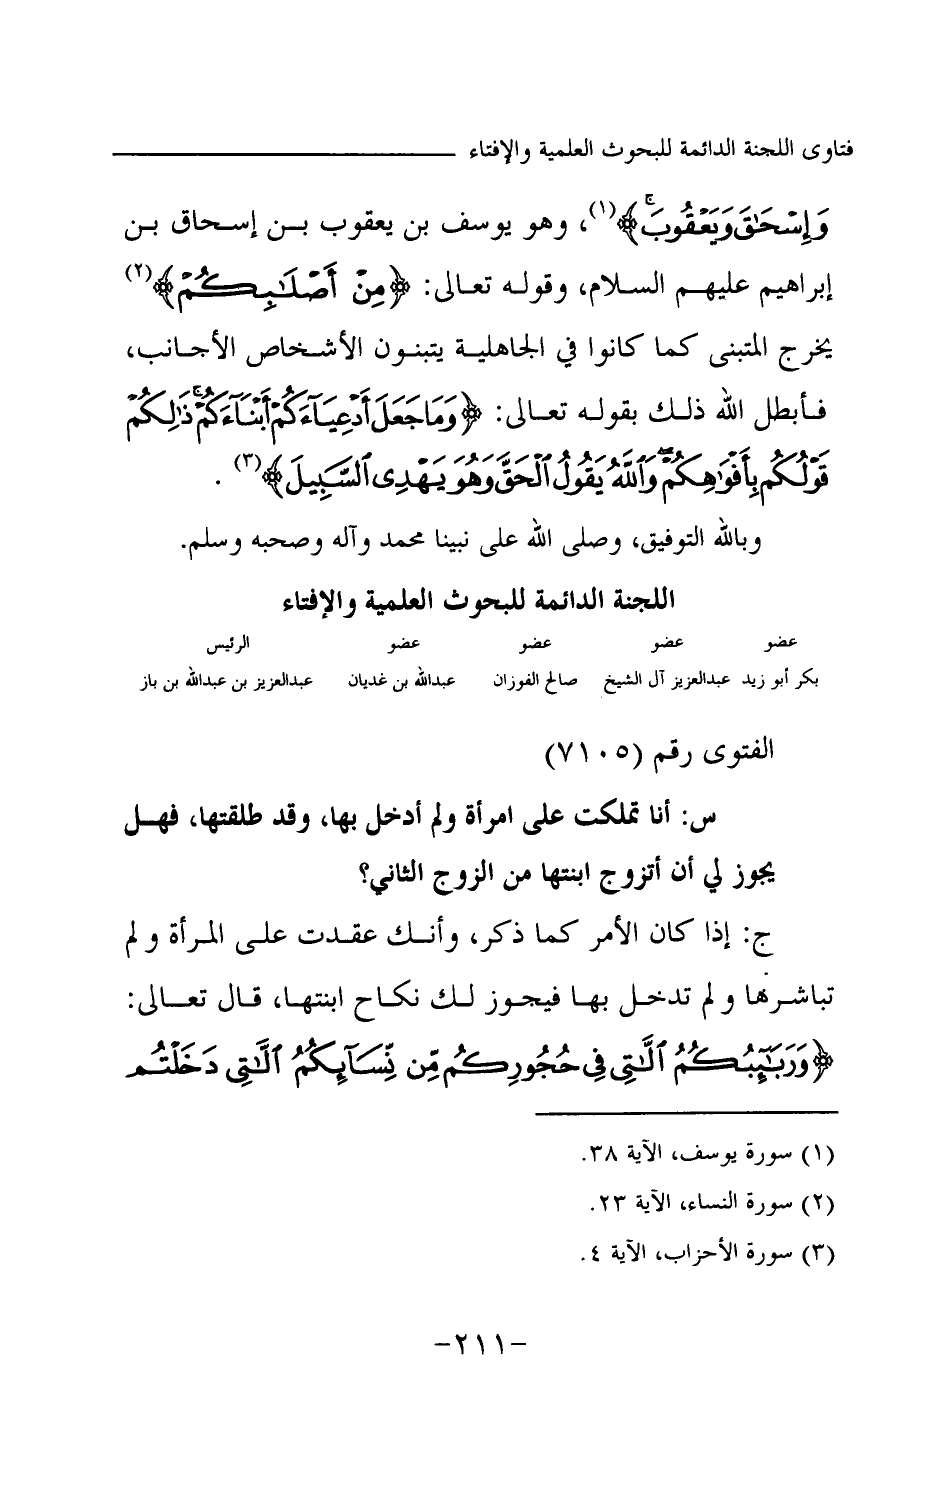 فتاوى اللجنة الدائمة للبحوث العلمية والإفتاء
وَإِسْحَٰقَ وَيَعْقُوبَۚ﴾(١)، وهو يوسف بن يعقوب بن إسحاق بن
إبراهيم عليهم السلام، وقوله تعالى: ﴿مِنْ أَصْلَٰبِكُمْ﴾(٢)
يخرج المتبنى كما كانوا في الجاهلية يتبنون الأشخاص الأجانب،
فأبطل الله ذلك بقوله تعالى: ﴿وَمَا جَعَلَ أَدْعِيَآءَكُمْ أَبْنَآءَكُمْۚ ذَٰلِكُمْ
قَوْلُكُم بِأَفْوَٰهِكُمْۖ وَٱللَّهُ يَقُولُ ٱلْحَقَّ وَهُوَ يَهْدِى ٱلسَّبِيلَ﴾(٣).
وبالله التوفيق، وصلى الله على نبينا محمد وآله وصحبه وسلم.
اللجنة الدائمة للبحوث العلمية والإفتاء
عضو عضو عضو عضو الرئيس
بكر أبو زيد عبدالعزيز آل الشيخ صالح الفوزان عبدالله بن غديان عبدالعزيز بن عبدالله بن باز
الفتوى رقم (٧١٠٥)
س: أنا تملكت على امرأة ولم أدخل بها، وقد طلقتها، فهل
يجوز لي أن أتزوج ابنتها من الزوج الثاني؟
ج: إذا كان الأمر كما ذكر، وأنك عقدت على المرأة ولم
تباشرها ولم تدخل بها فيجوز لك نكاح ابنتها، قال تعالى:
﴿وَرَبَٰٓئِبُكُمُ ٱلَّٰتِى فِى حُجُورِكُم مِّن نِّسَآئِكُمُ ٱلَّٰتِى دَخَلْتُم
(١) سورة يوسف، الآية ٣٨.
(٢) سورة النساء، الآية ٢٣.
(٣) سورة الأحزاب، الآية ٤.
-٢١١-